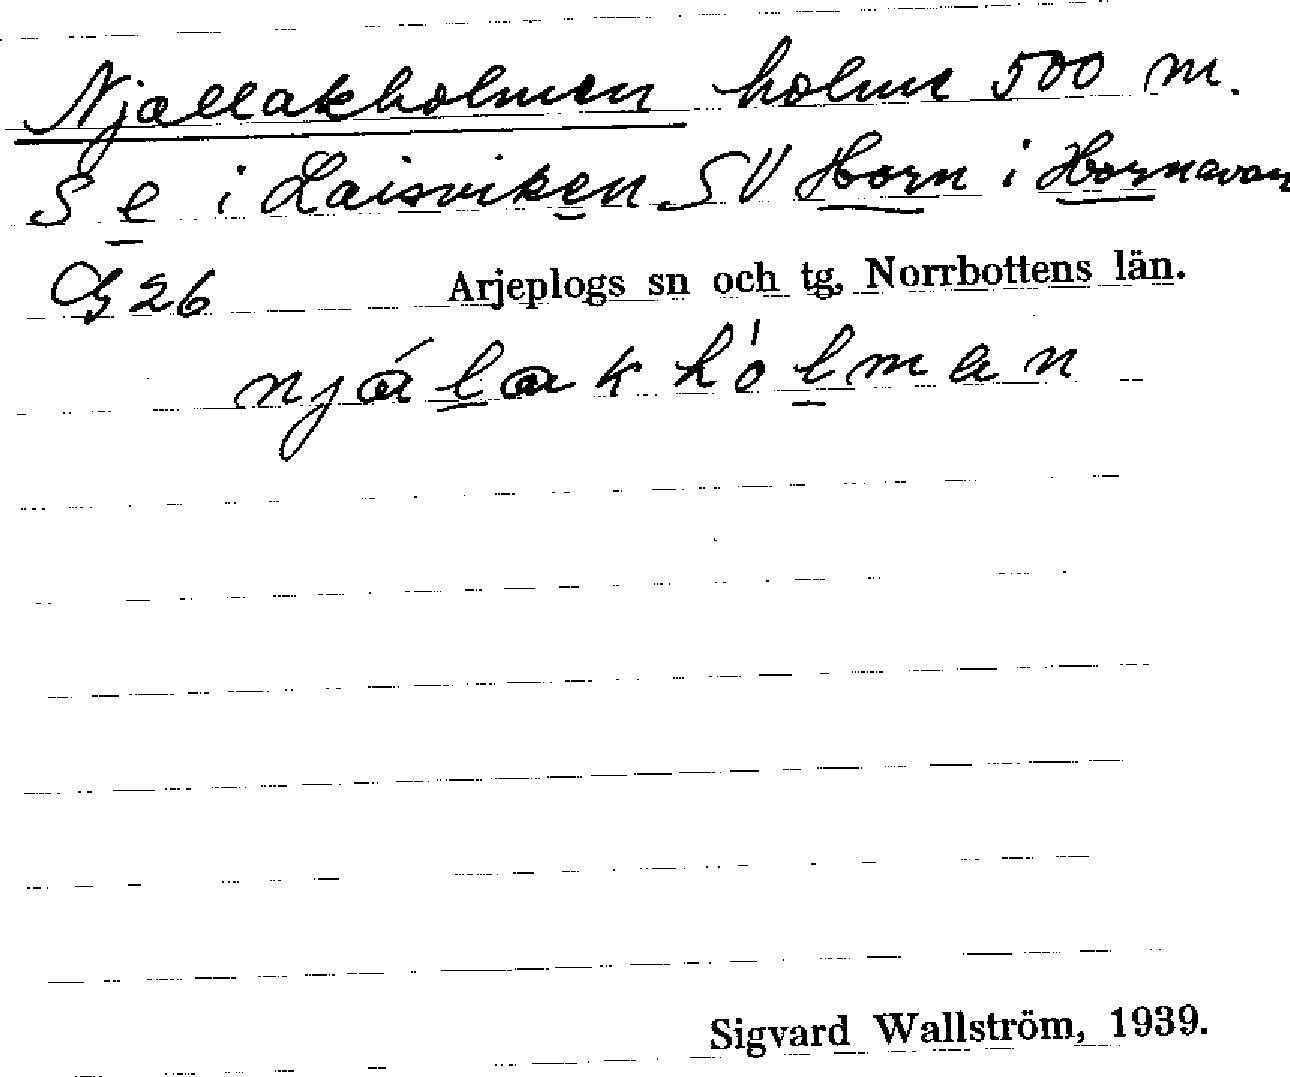 Njallakholmen holme 500 m.
S e i Laisviken SV Horn i Hornavan
G 26 Arjeplogs sn och tg, Norrbottens län.
njálakhólman
Sigvard Wallström, 1939.